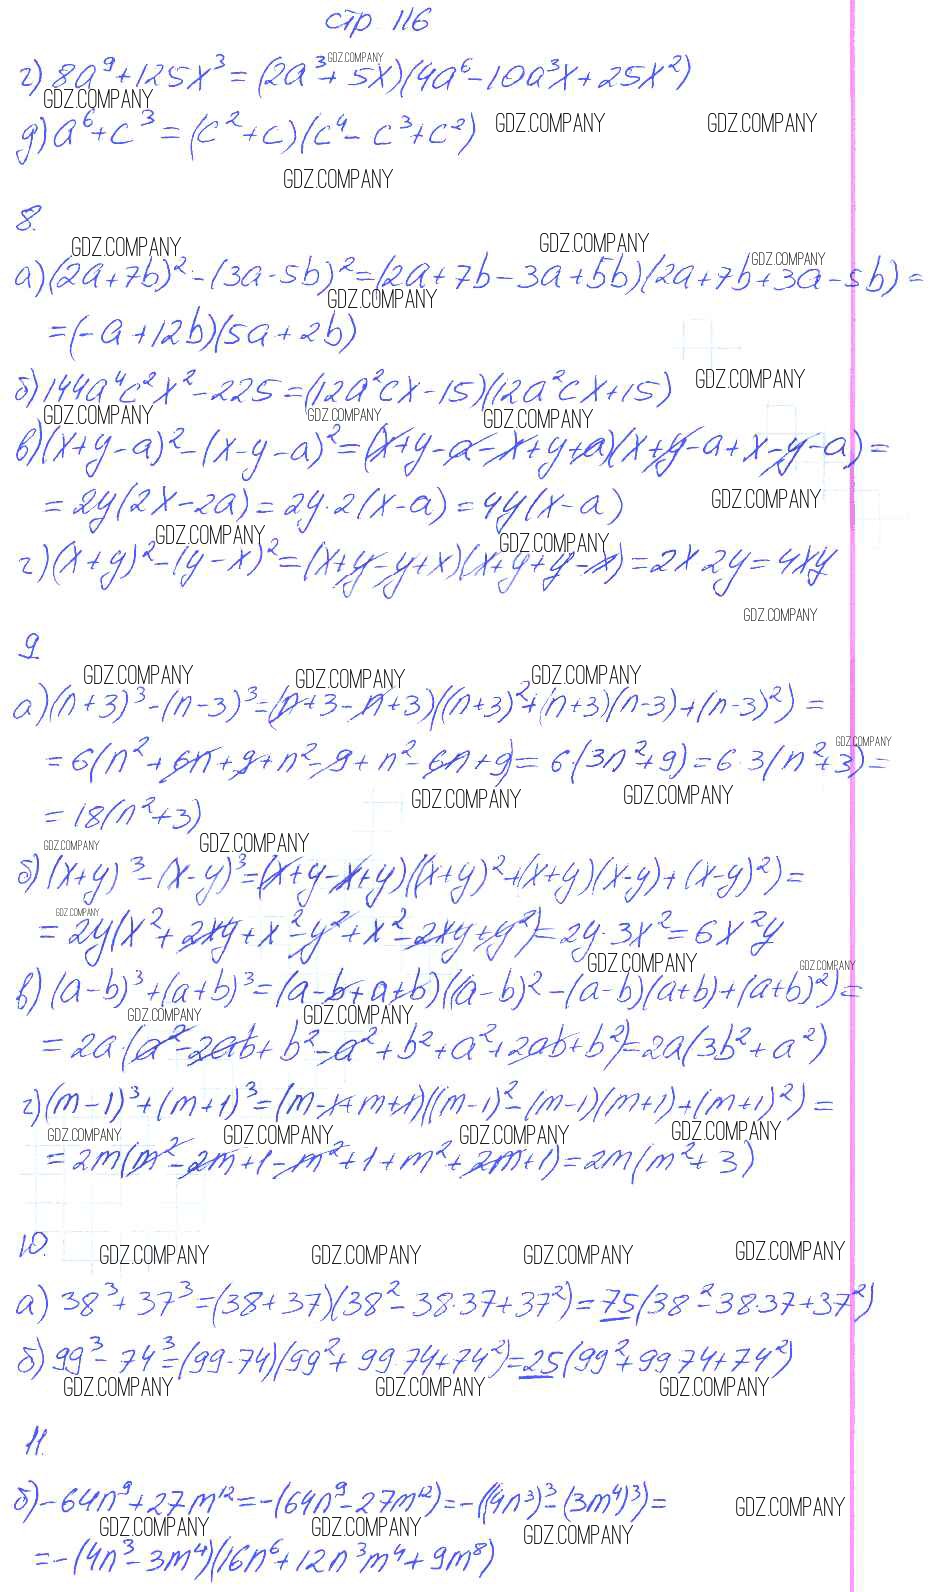 стр 116
г) 8a⁹+125x³=(2a³+5x)(4a⁶-10a³x+25x²)
д) a⁶+c³=(c²+c)(c⁴-c³+c²)
8.
а) (2a+7b)²-(3a-5b)²=(2a+7b-3a+5b)(2a+7b+3a-5b)=
=(-a+12b)(5a+2b)
б) 144a⁴c²x²-225=(12a²cx-15)(12a²cx+15)
в) (x+y-a)²-(x-y-a)²=(x+y-a-x+y+a)(x+y-a+x-y-a)=
=2y(2x-2a)=2y·2(x-a)=4y(x-a)
г) (x+y)²-(y-x)²=(x+y-y+x)(x+y+y-x)=2x·2y=4xy
9
а) (n+3)³-(n-3)³=(n+3-n+3)((n+3)²+(n+3)(n-3)+(n-3)²)=
=6(n²+6n+9+n²-9+n²-6n+9)=6·(3n²+9)=6·3(n²+3)=
=18(n²+3)
б) (x+y)³-(x-y)³=(x+y-x+y)((x+y)²+(x+y)(x-y)+(x-y)²)=
=2y(x²+2xy+x²-y²+x²-2xy+y²)=2y·3x²=6x²y
в) (a-b)³+(a+b)³=(a-b+a+b)((a-b)²-(a-b)(a+b)+(a+b)²)=
=2a·(a²-2ab+b²-a²+b²+a²+2ab+b²)=2a(3b²+a²)
г) (m-1)³+(m+1)³=(m-1+m+1)((m-1)²-(m-1)(m+1)+(m+1)²)=
=2m(m²-2m+1-m²+1+m²+2m+1)=2m(m²+3)
10.
а) 38³+37³=(38+37)(38²-38·37+37²)=75(38²-38·37+37²)
б) 99³-74³=(99-74)(99²+99·74+74²)=25(99²+99·74+74²)
11.
б) -64n⁹+27m¹²=-(64n⁹-27m¹²)=-((4n³)³-(3m⁴)³)=
=-(4n³-3m⁴)(16n⁶+12n³m⁴+9m⁸)
GDZ.COMPANY